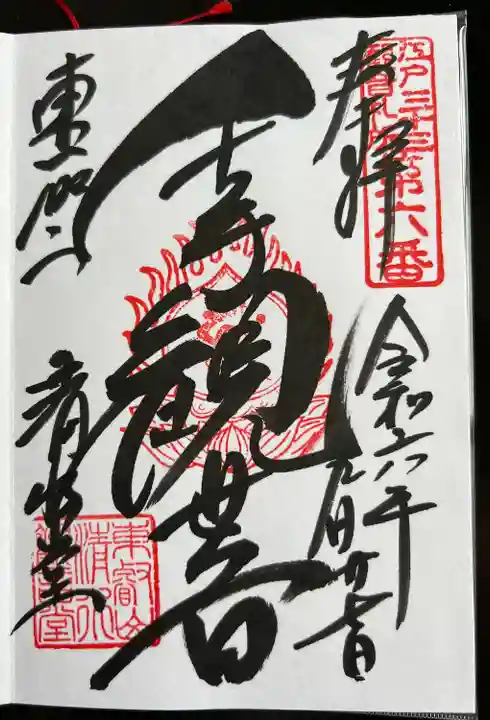 江戸三十三観音札所第六番
奉拝
令和六年九月廿七日
千手観世音
東叡山
清水堂
東叡山
清水
観音堂